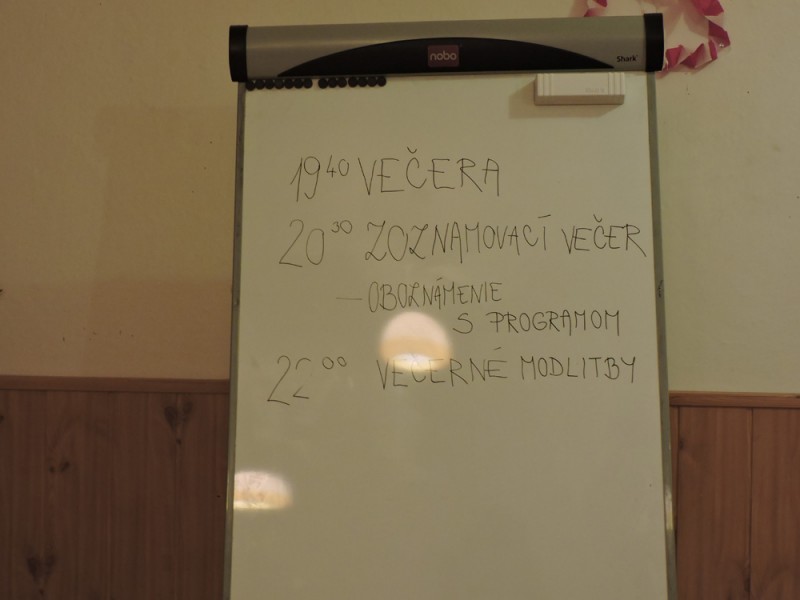 nobo
Shark
19⁴⁰ VEČERA
20³⁰ ZOZNAMOVACÍ VEČER
— OBOZNÁMENIE
S PROGRAMOM
22⁰⁰ VEČERNÉ MODLITBY